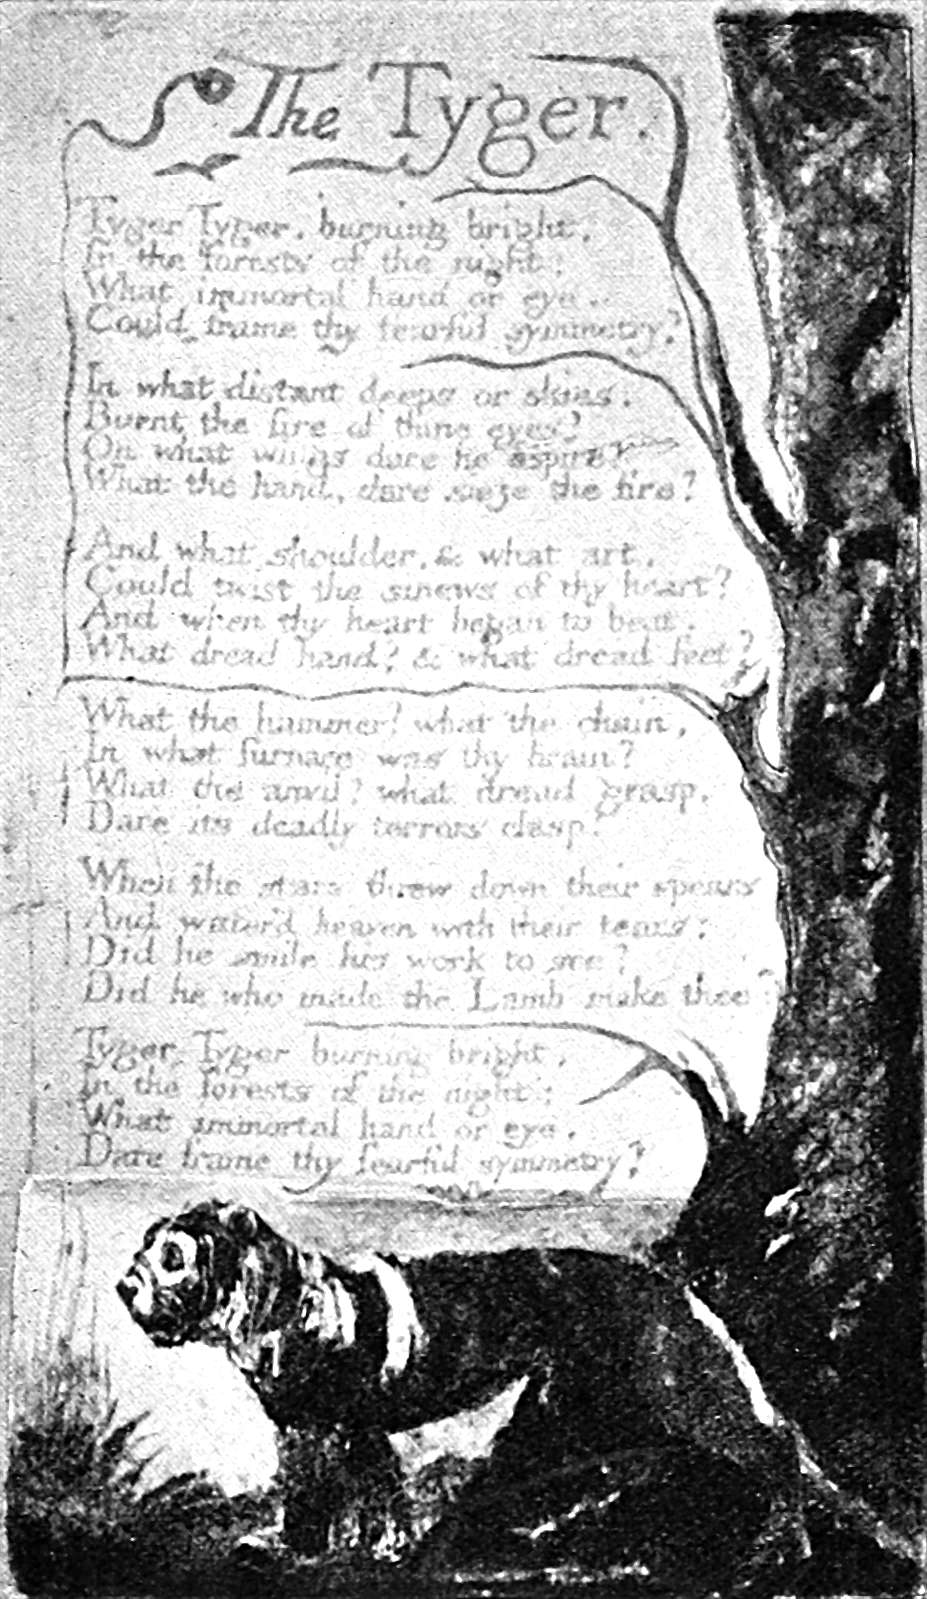 The Tyger.
Tyger Tyger, burning bright,
In the forests of the night;
What immortal hand or eye,
Could frame thy fearful symmetry?
In what distant deeps or skies.
Burnt the fire of thine eyes?
On what wings dare he aspire?
What the hand, dare sieze the fire?
And what shoulder, & what art,
Could twist the sinews of thy heart?
And when thy heart began to beat,
What dread hand? & what dread feet?
What the hammer? what the chain,
In what furnace was thy brain?
What the anvil? what dread grasp,
Dare its deadly terrors clasp?
When the stars threw down their spears
And water'd heaven with their tears:
Did he smile his work to see?
Did he who made the Lamb make thee?
Tyger, Tyger burning bright,
In the forests of the night:
What immortal hand or eye,
Dare frame thy fearful symmetry?